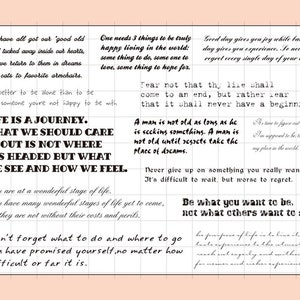 have all got our "good old
tucked away inside our hearts,
return to them in dreams
cats to favorite armchairs.
One needs 3 things to be truly
happy living in the world:
some thing to do, some one to
love, some thing to hope for.
Good day gives you joy while
day gives you experience. So
regret every single day of your
better to be alone than to be
someone you're not happy to be with.
Fear not that thy life shall
come to an end, but rather fear
that it shall never have a beginn
FE IS A JOURNEY.
HAT WE SHOULD CARE
OUT IS NOT WHERE
S HEADED BUT WHAT
E SEE AND HOW WE FEEL.
A man is not old as long as he
is seeking something. A man is
not old until regrets take the
place of dreams.
Never give up on something you really wan
It's difficult to wait, but worse to regret.
are at a wonderful stage of life.
have many wonderful stages of life yet to come,
they are not without their costs and perils.
Be what you want to be,
not what others want to s
n't forget what to do and where to go
have promised yourself, no matter how
fficult or far it is.